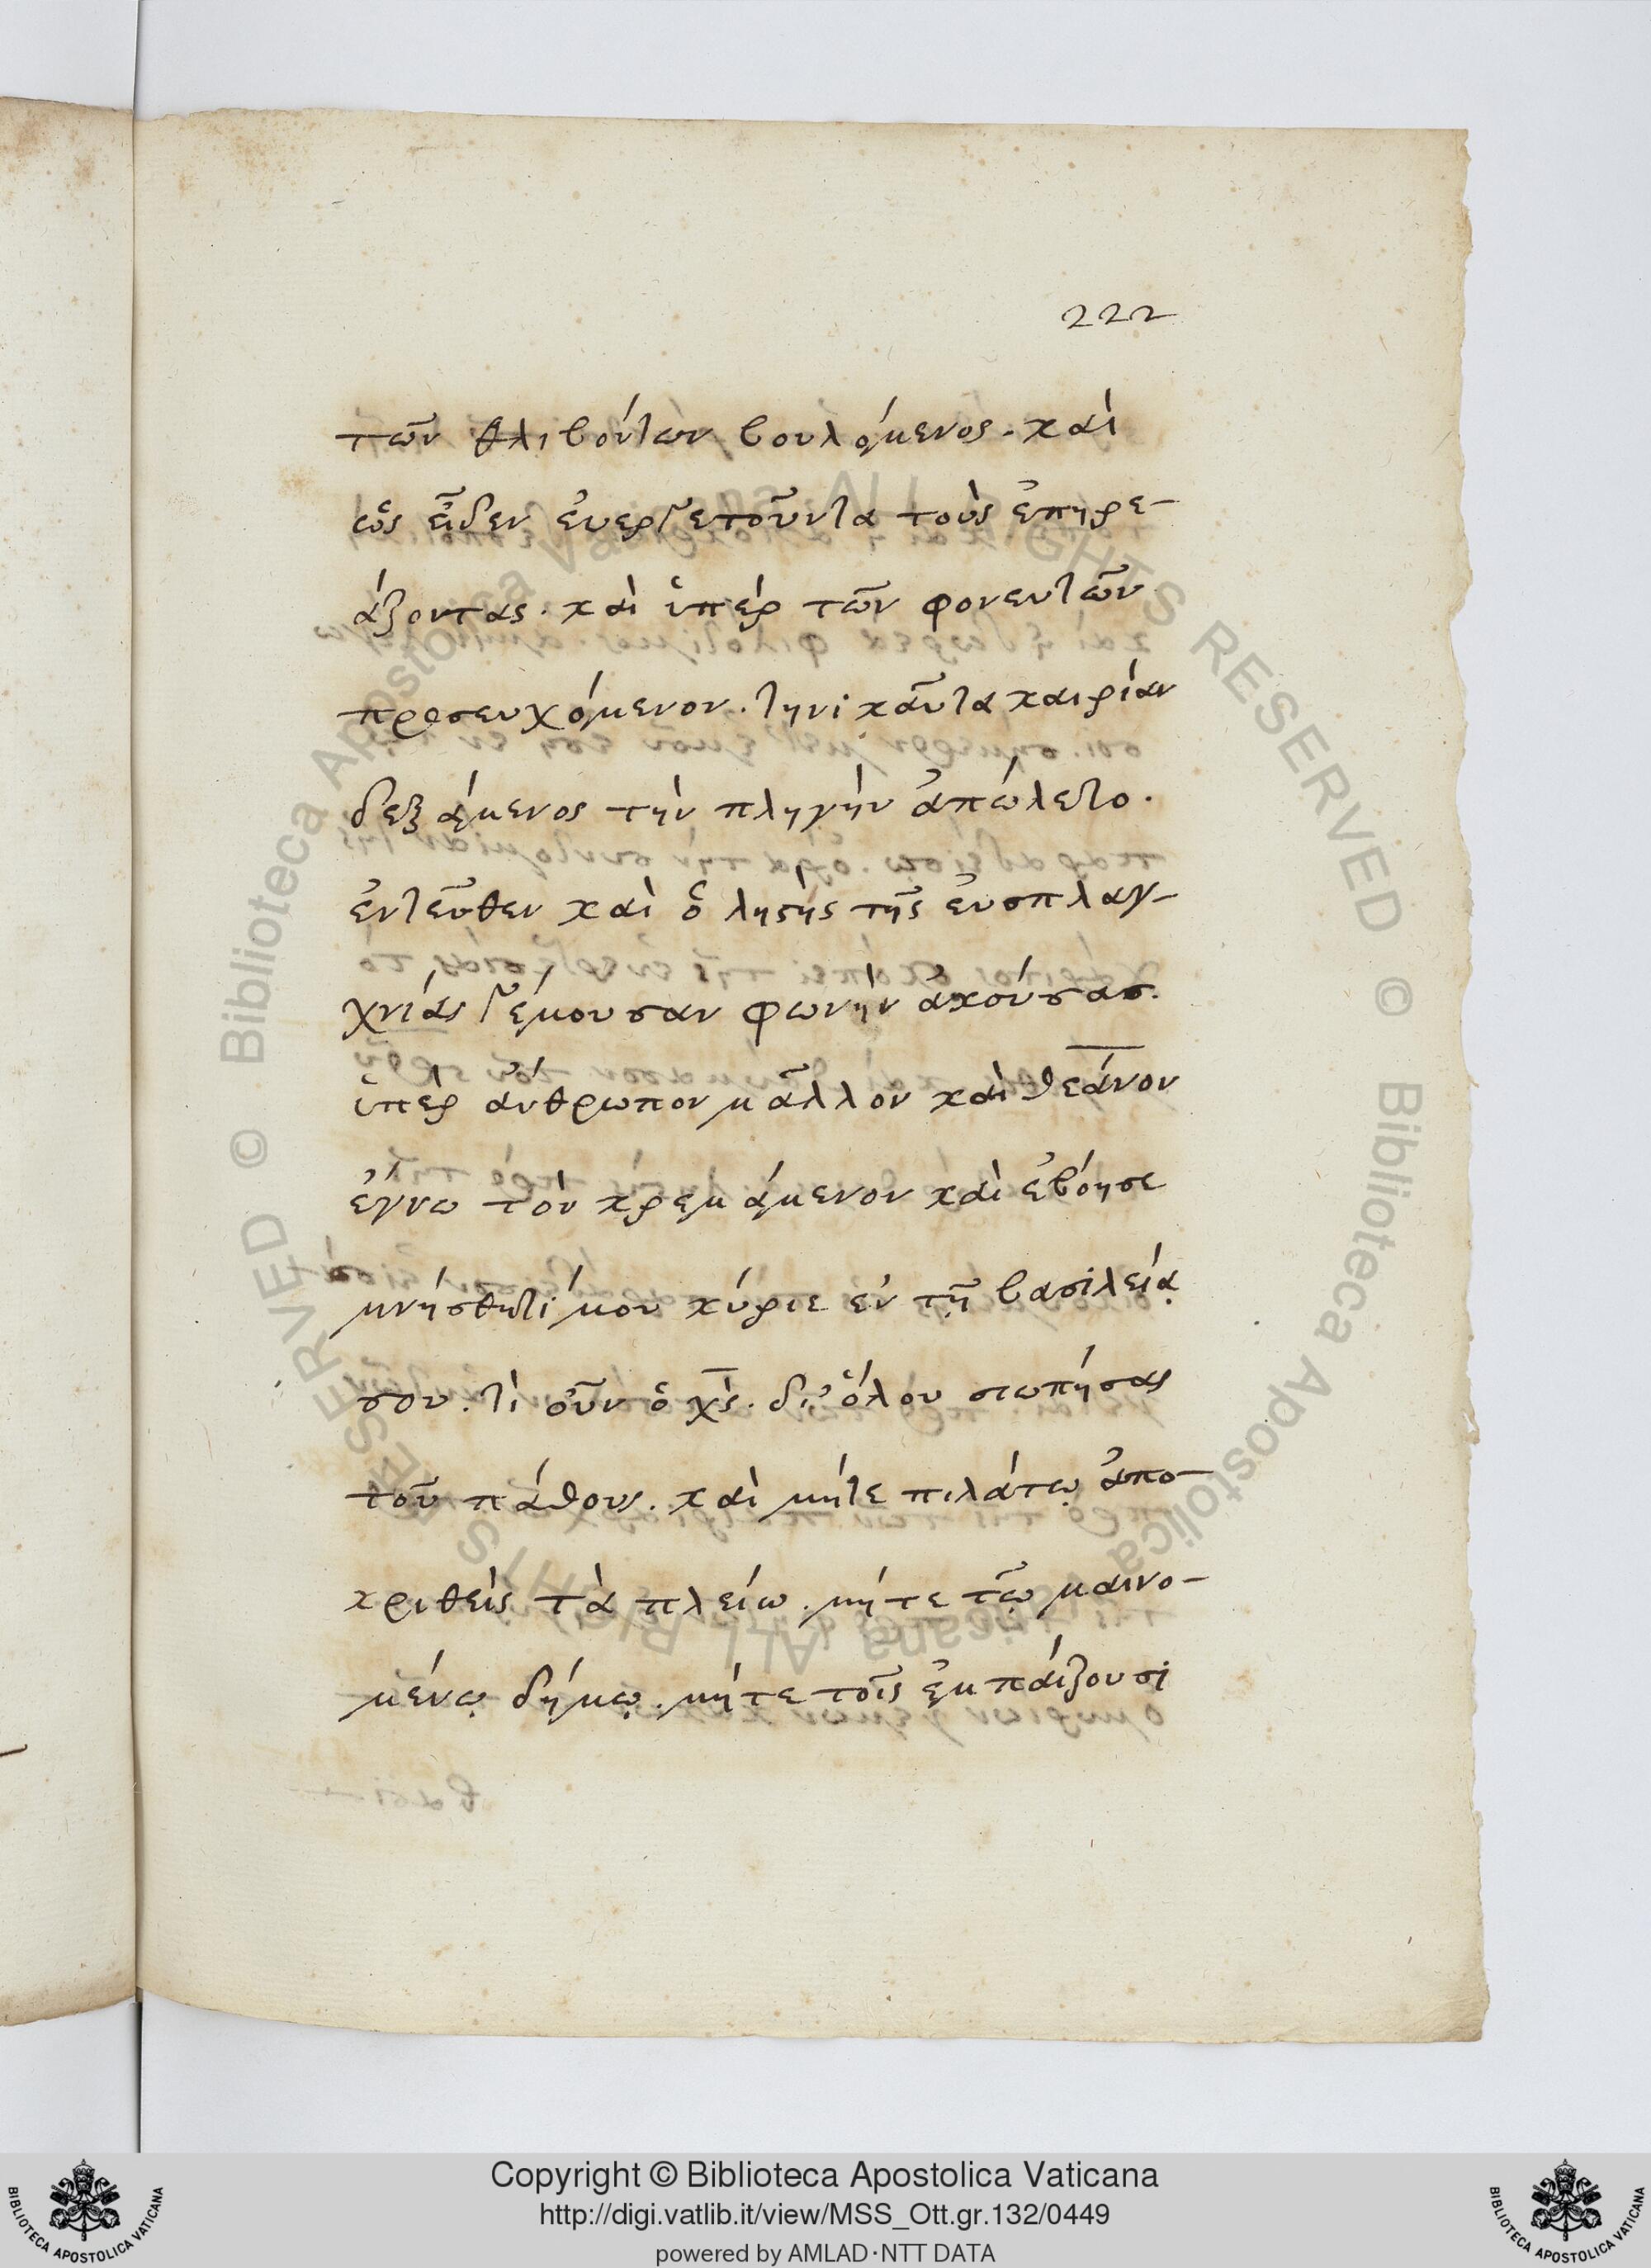 222
τῶν θλιβόντων βουλόμενος. καὶ
ὡς εἶδεν ἐυεργετοῦντα τοὺς ἐπηρε-
άζοντας. καὶ ὑπὲρ τῶν φονευτῶν
προσευχόμενον. τηνικαῦτα καιρίαν
δεξάμενος τὴν πληγὴν ἀπώλετο.
ἐντεῦθεν καὶ ὁ ληϛὴς τῆς ἐυσπλαγ-
χνίας γέμουσαν φωνὴν ἀκούσας.
ὑπὲρ ἄνθρωπον μᾶλλον καὶ θεάνον
ἔγνω τὸν κρεμάμενον καὶ ἐβόησε
μνήσθητί μου κύριε ἐν τῇ βασιλείᾳ
σου. τὶ οὖν ὁ χς. δι' ὅλου σιωπήσας
τοῦ πάθους. καὶ μήτε πιλάτῳ ἀπο-
κριθεὶς τὰ πλείω. μήτε τῷ μαινο-
μένῳ δήμῳ. μήτε τοῖς ἐμπαίζουσι
Copyright © Biblioteca Apostolica Vaticana
http://digi.vatlib.it/view/MSS_Ott.gr.132/0449
powered by AMLAD·NTT DATA
BIBLIOTECA APOSTOLICA VATICANA
BIBLIOTECA APOSTOLICA VATICANA
© Biblioteca Apostolica Vaticana ALL RIGHTS RESERVED
© Biblioteca Apostolica Vaticana ALL RIGHTS RESERVED